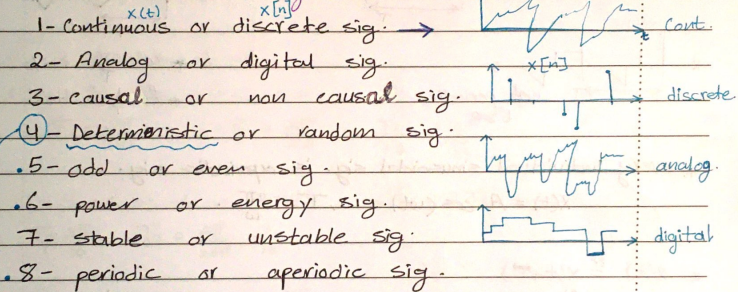 x(t) x[n]
1- Continuous or discrete sig. → Cont.
t
2- Analog or digital sig.
x[n]
3- causal or non causal sig. discrete
4- Determenistic or random sig.
.5- odd or even sig. analog.
.6- power or energy sig.
7- stable or unstable sig. digital
.8- periodic or aperiodic sig.